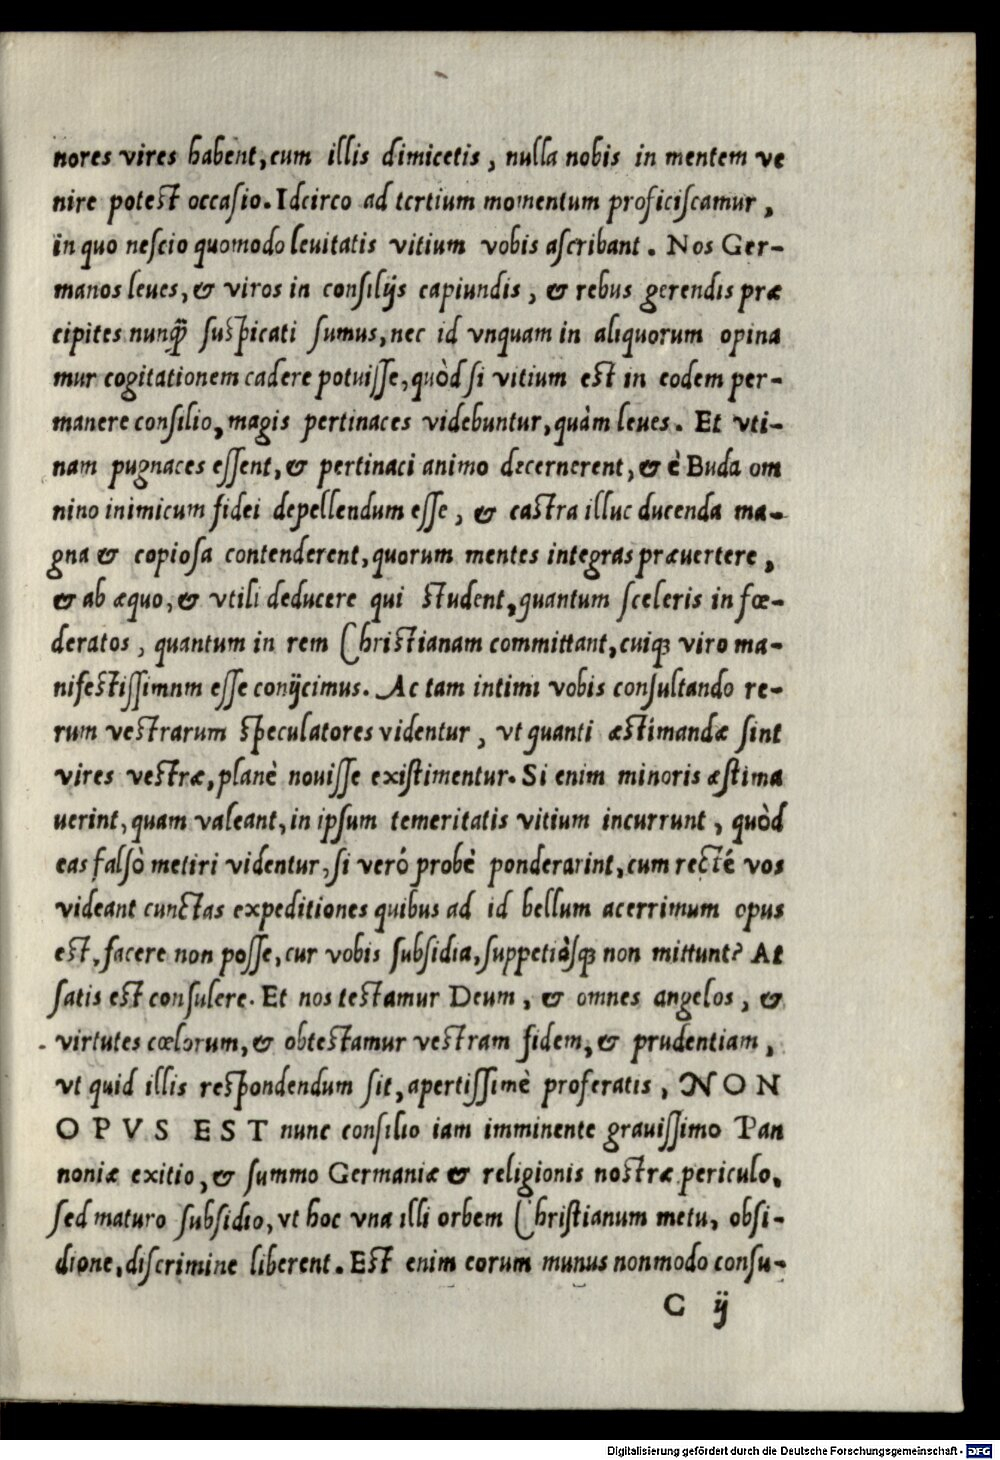 nores vires habent, cum illis dimicetis, nulla nobis in mentem ve
nire potest occasio. Idcirco ad tertium momentum proficiscamur,
in quo nescio quomodo leuitatis vitium vobis ascribant. Nos Ger-
manos leues, & viros in consilijs capiundis, & rebus gerendis præ
cipites nunq̃ suspicati sumus, nec id vnquam in aliquorum opina
mur cogitationem cadere potuisse, quòd si vitium est in eodem per-
manere consilio, magis pertinaces videbuntur, quàm leues. Et vti-
nam pugnaces essent, & pertinaci animo decernerent, & è Buda om
nino inimicum fidei depellendum esse, & castra illuc ducenda ma-
gna & copiosa contenderent, quorum mentes integras præuertere,
& ab æquo, & vtili deducere qui student, quantum sceleris in fœ-
deratos, quantum in rem Christianam committant, cuiqꝫ viro ma-
nifestissimnm esse conijcimus. Ac tam intimi vobis consultando re-
rum vestrarum speculatores videntur, vt quanti æstimandæ sint
vires vestræ, planè nouisse existimentur. Si enim minoris æstima
uerint, quam valeant, in ipsum temeritatis vitium incurrunt, quòd
eas falsò metiri videntur, si veró probè ponderarint, cum recté vos
videant cunctas expeditiones quibus ad id bellum acerrimum opus
est, facere non posse, cur vobis subsidia, suppetiàsqꝫ non mittunt? At
satis est consulere. Et nos testamur Deum, & omnes angelos, &
virtutes cœlorum, & obtestamur vestram fidem, & prudentiam,
vt quid illis respondendum sit, apertissimè proferatis, NON
OPVS EST nunc consilio iam imminente grauissimo Pan
noniæ exitio, & summo Germaniæ & religionis nostræ periculo,
sed maturo subsidio, vt hoc vna illi orbem Christianum metu, obsi-
dione, discrimine liberent. Est enim eorum munus nonmodo consu-
C ij
Digitalisierung gefördert durch die Deutsche Forschungsgemeinschaft - DFG